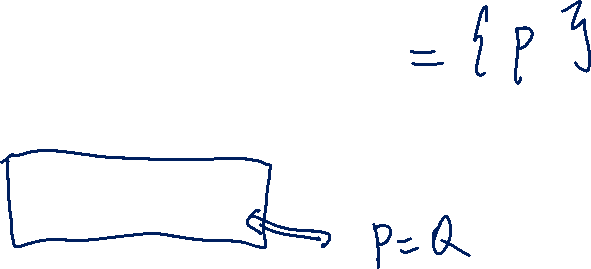 = { p }
P = Q